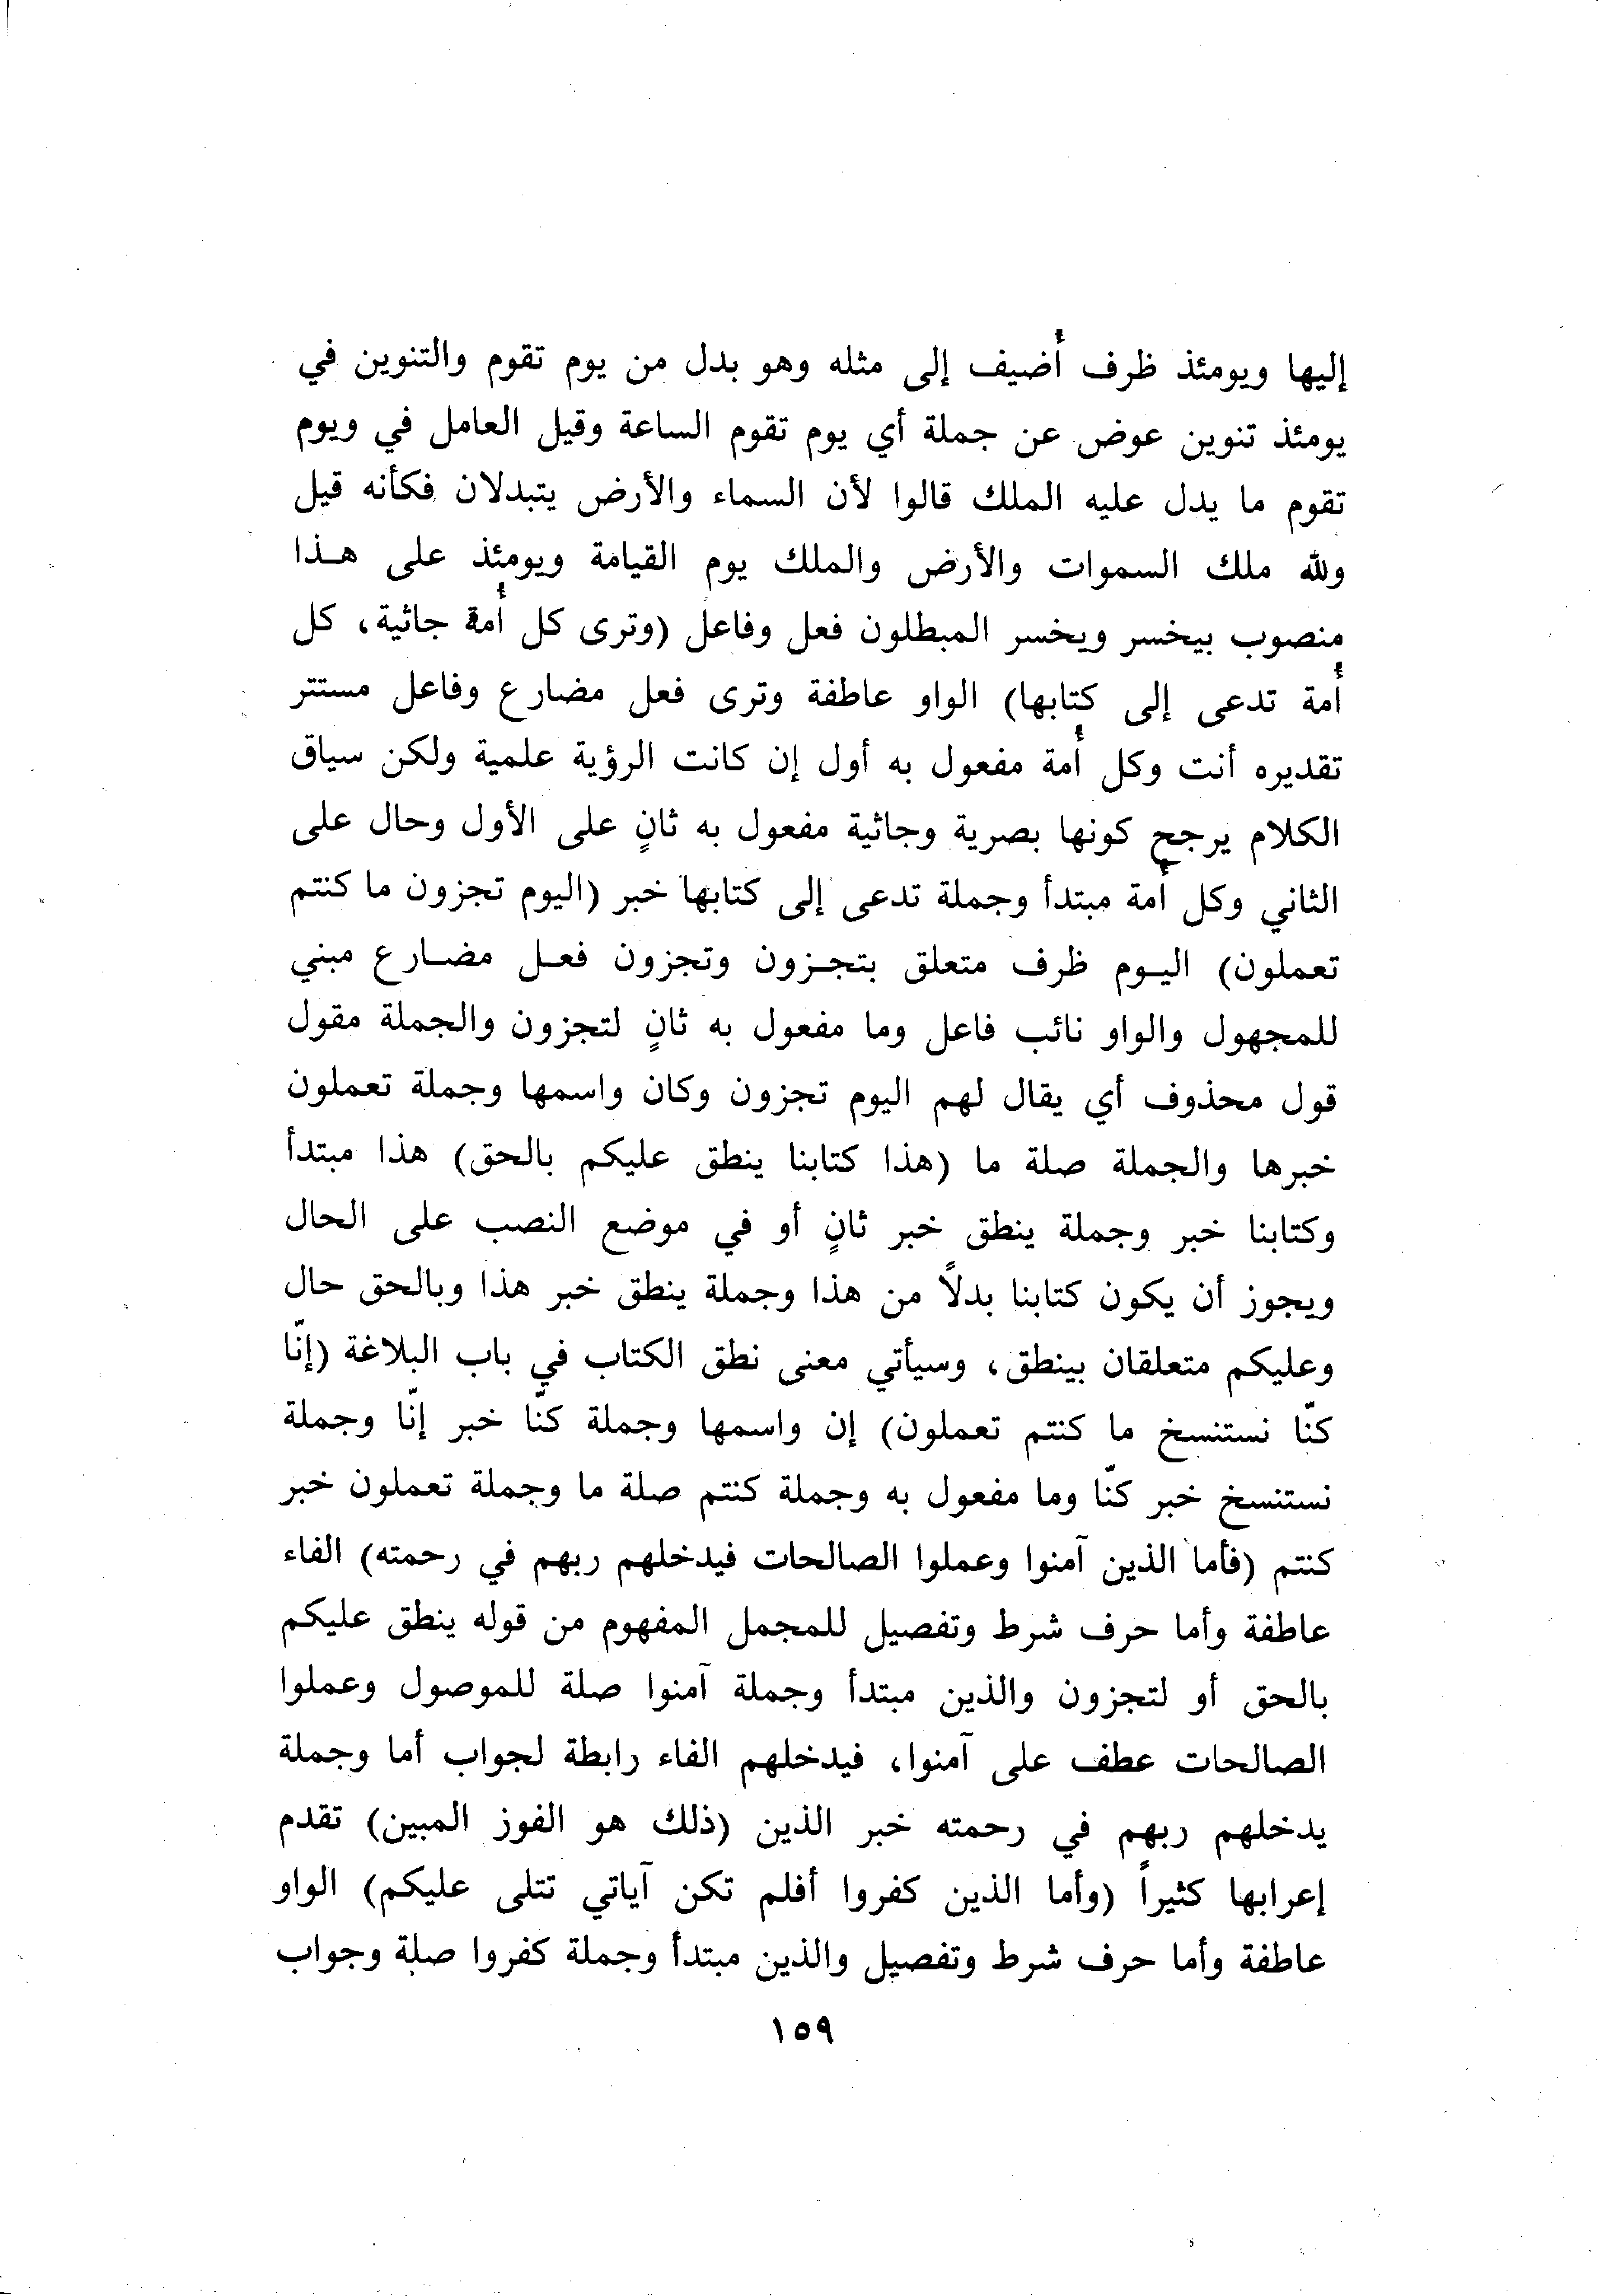 إليها ويومئذ ظرف أُضيف إلى مثله وهو بدل من يوم تقوم والتنوين في
يومئذ تنوين عوض عن جملة أي يوم تقوم الساعة وقيل العامل في ويوم
تقوم ما يدل عليه الملك قالوا لأن السماء والأرض يتبدلان فكأنه قيل
ولله ملك السموات والأرض والملك يوم القيامة ويومئذ على هذا
منصوب بيخسر ويخسر المبطلون فعل وفاعل (وترى كل أُمة جاثية، كل
أُمة تدعى إلى كتابها) الواو عاطفة وترى فعل مضارع وفاعل مستتر
تقديره أنت وكل أُمة مفعول به أول إن كانت الرؤية علمية ولكن سياق
الكلام يرجح كونها بصرية وجاثية مفعول به ثانٍ على الأول وحال على
الثاني وكل أمة مبتدأ وجملة تدعى إلى كتابها خبر (اليوم تجزون ما كنتم
تعملون) اليوم ظرف متعلق بتجزون وتجزون فعل مضارع مبني
للمجهول والواو نائب فاعل وما مفعول به ثانٍ لتجزون والجملة مقول
قول محذوف أي يقال لهم اليوم تجزون وكان واسمها وجملة تعملون
خبرها والجملة صلة ما (هذا كتابنا ينطق عليكم بالحق) هذا مبتدأ
وكتابنا خبر وجملة ينطق خبر ثانٍ أو في موضع النصب على الحال
ويجوز أن يكون كتابنا بدلاً من هذا وجملة ينطق خبر هذا وبالحق حال
وعليكم متعلقان بينطق، وسيأتي معنى نطق الكتاب في باب البلاغة (إنّا
كنّا نستنسخ ما كنتم تعملون) إن واسمها وجملة كنّا خبر إنّا وجملة
نستنسخ خبر كنّا وما مفعول به وجملة كنتم صلة ما وجملة تعملون خبر
كنتم (فأما الذين آمنوا وعملوا الصالحات فيدخلهم ربهم في رحمته) الفاء
عاطفة وأما حرف شرط وتفصيل للمجمل المفهوم من قوله ينطق عليكم
بالحق أو لتجزون والذين مبتدأ وجملة آمنوا صلة للموصول وعملوا
الصالحات عطف على آمنوا، فيدخلهم الفاء رابطة لجواب أما وجملة
يدخلهم ربهم في رحمته خبر الذين (ذلك هو الفوز المبين) تقدم
إعرابها كثيراً (وأما الذين كفروا أفلم تكن آياتي تتلى عليكم) الواو
عاطفة وأما حرف شرط وتفصيل والذين مبتدأ وجملة كفروا صلة وجواب
١٥٩